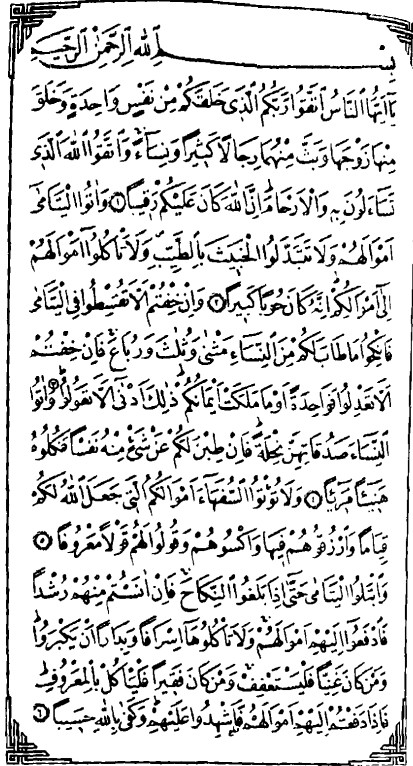 بِسْمِ اللّٰهِ الرَّحْمٰنِ الرَّحِيمِ
يَٓا اَيُّهَا النَّاسُ اتَّقُوا رَبَّكُمُ الَّذ۪ي خَلَقَكُمْ مِنْ نَفْسٍ وَاحِدَةٍ وَخَلَقَ
مِنْهَا زَوْجَهَا وَبَثَّ مِنْهُمَا رِجَالًا كَث۪يرًا وَنِسَٓاءًۚ وَاتَّقُوا اللّٰهَ الَّذ۪ي
تَسَٓاءَلُونَ بِه۪ وَالْاَرْحَامَۜ اِنَّ اللّٰهَ كَانَ عَلَيْكُمْ رَق۪يبًا ﴿١﴾ وَاٰتُوا الْيَتَامٰٓى
اَمْوَالَهُمْ وَلَا تَتَبَدَّلُوا الْخَب۪يثَ بِالطَّيِّبِۖ وَلَا تَأْكُلُٓوا اَمْوَالَهُمْ
اِلٰٓى اَمْوَالِكُمْۜ اِنَّهُ كَانَ حُوبًا كَب۪يرًا ﴿٢﴾ وَاِنْ خِفْتُمْ اَلَّا تُقْسِطُوا فِي الْيَتَامٰى
فَانْكِحُوا مَا طَابَ لَكُمْ مِنَ النِّسَٓاءِ مَثْنٰى وَثُلٰثَ وَرُبَاعَۚ فَاِنْ خِفْتُمْ
اَلَّا تَعْدِلُوا فَوَاحِدَةً اَوْ مَا مَلَكَتْ اَيْمَانُكُمْۜ ذٰلِكَ اَدْنٰٓى اَلَّا تَعُولُواۜ ﴿٣﴾ وَاٰتُوا
النِّسَٓاءَ صَدُقَاتِهِنَّ نِحْلَةًۜ فَاِنْ طِبْنَ لَكُمْ عَنْ شَيْءٍ مِنْهُ نَفْسًا فَكُلُوهُ
هَن۪ٓيـًٔا مَر۪ٓيـًٔا ﴿٤﴾ وَلَا تُؤْتُوا السُّفَهَٓاءَ اَمْوَالَكُمُ الَّت۪ي جَعَلَ اللّٰهُ لَكُمْ
قِيَامًا وَارْزُقُوهُمْ ف۪يهَا وَاكْسُوهُمْ وَقُولُوا لَهُمْ قَوْلًا مَعْرُوفًا ﴿٥﴾
وَابْتَلُوا الْيَتَامٰى حَتّٰٓى اِذَا بَلَغُوا النِّكَاحَۚ فَاِنْ اٰنَسْتُمْ مِنْهُمْ رُشْدًا
فَادْفَعُٓوا اِلَيْهِمْ اَمْوَالَهُمْۚ وَلَا تَأْكُلُوهَٓا اِسْرَافًا وَبِدَارًا اَنْ يَكْبَرُواۜ
وَمَنْ كَانَ غَنِيًّا فَلْيَسْتَعْفِفْۚ وَمَنْ كَانَ فَق۪يرًا فَلْيَأْكُلْ بِالْمَعْرُوفِۜ
فَاِذَا دَفَعْتُمْ اِلَيْهِمْ اَمْوَالَهُمْ فَاَشْهِدُوا عَلَيْهِمْۜ وَكَفٰى بِاللّٰهِ حَس۪يبًا ﴿٦﴾